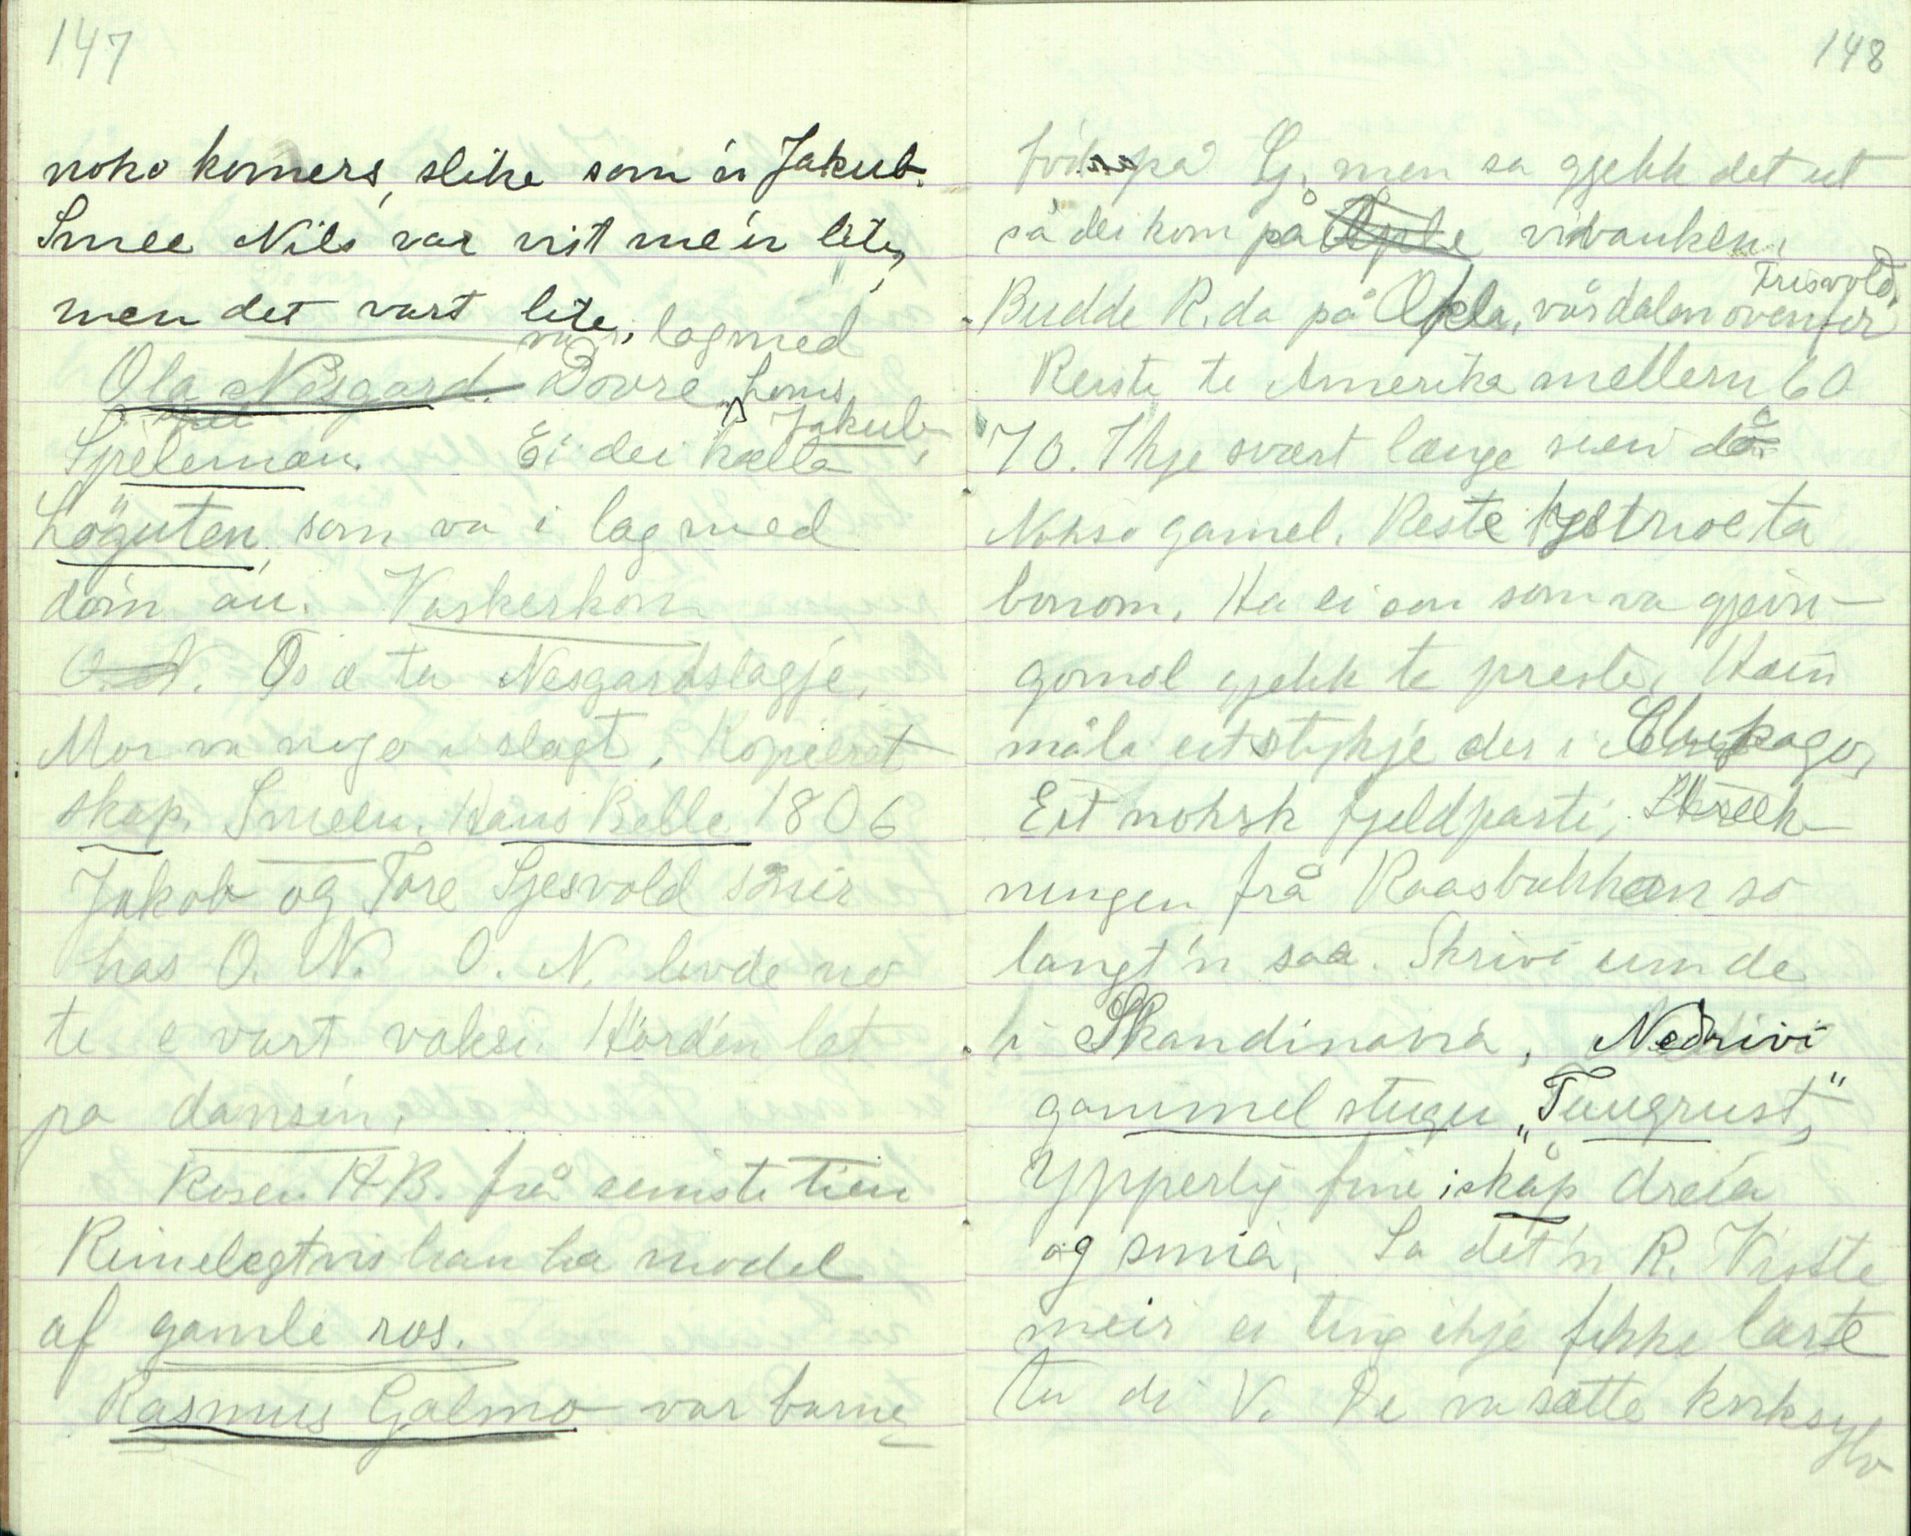 147
noko komers, slike som 'n Jakub.
Smee Nils var vist me 'n lite,
men det vart lite.
va i lag med
Ola Nesgard. Dovre Loms
Jakub.
Speleman. Ei dei kalla
Löguten, som va i lag med
døm au. Vaskerkøn
O. N. Os a ta Nesgardslagje.
Mor va nogo i slagt. Kopieret
skap. Smeen. Hans Belle 1806
Jakob og Tore Sjesvold sønir
has O. N. O. N. levde no
te e vart vaksi. Hörd'en låt
på dansen.
Rosen H.B. frå seinste tien
Rimelegtvis han ha model
af gamle ros.
Rasmus Galmo var barne
148
på Sj. men sa gjekk det ut
så dei kom på vidvanken.
Trisvold.
Budde R. da på Okla, vårdalen ovenfor
Reiste te Amerika mellem 60
70. Ikje svært længe sien då
Nokso gamel. Reste te
bonom. Ha ei son som va gjevn
gomol gjekk te presten, Hain
måla eit stykje der i Chikago,
Eit nohsk fjeldparti, Strek
ningen frå Raasbakkan so
langt 'n saa. Skrivi um de
i Skandinavia, Nedrivi
gammel stugu „Tungrust,"
Ypperlig fine skåp dreia
og smia. Sa det 'n R. Visste
meir ei ting ikje fekke lært
ta di V. De va sætte kvksylv